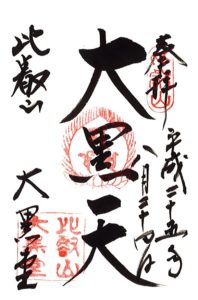 奉拝
平成二十五年
八月二十四日
大黒天
比叡山
大黒堂
比叡山
大黒堂